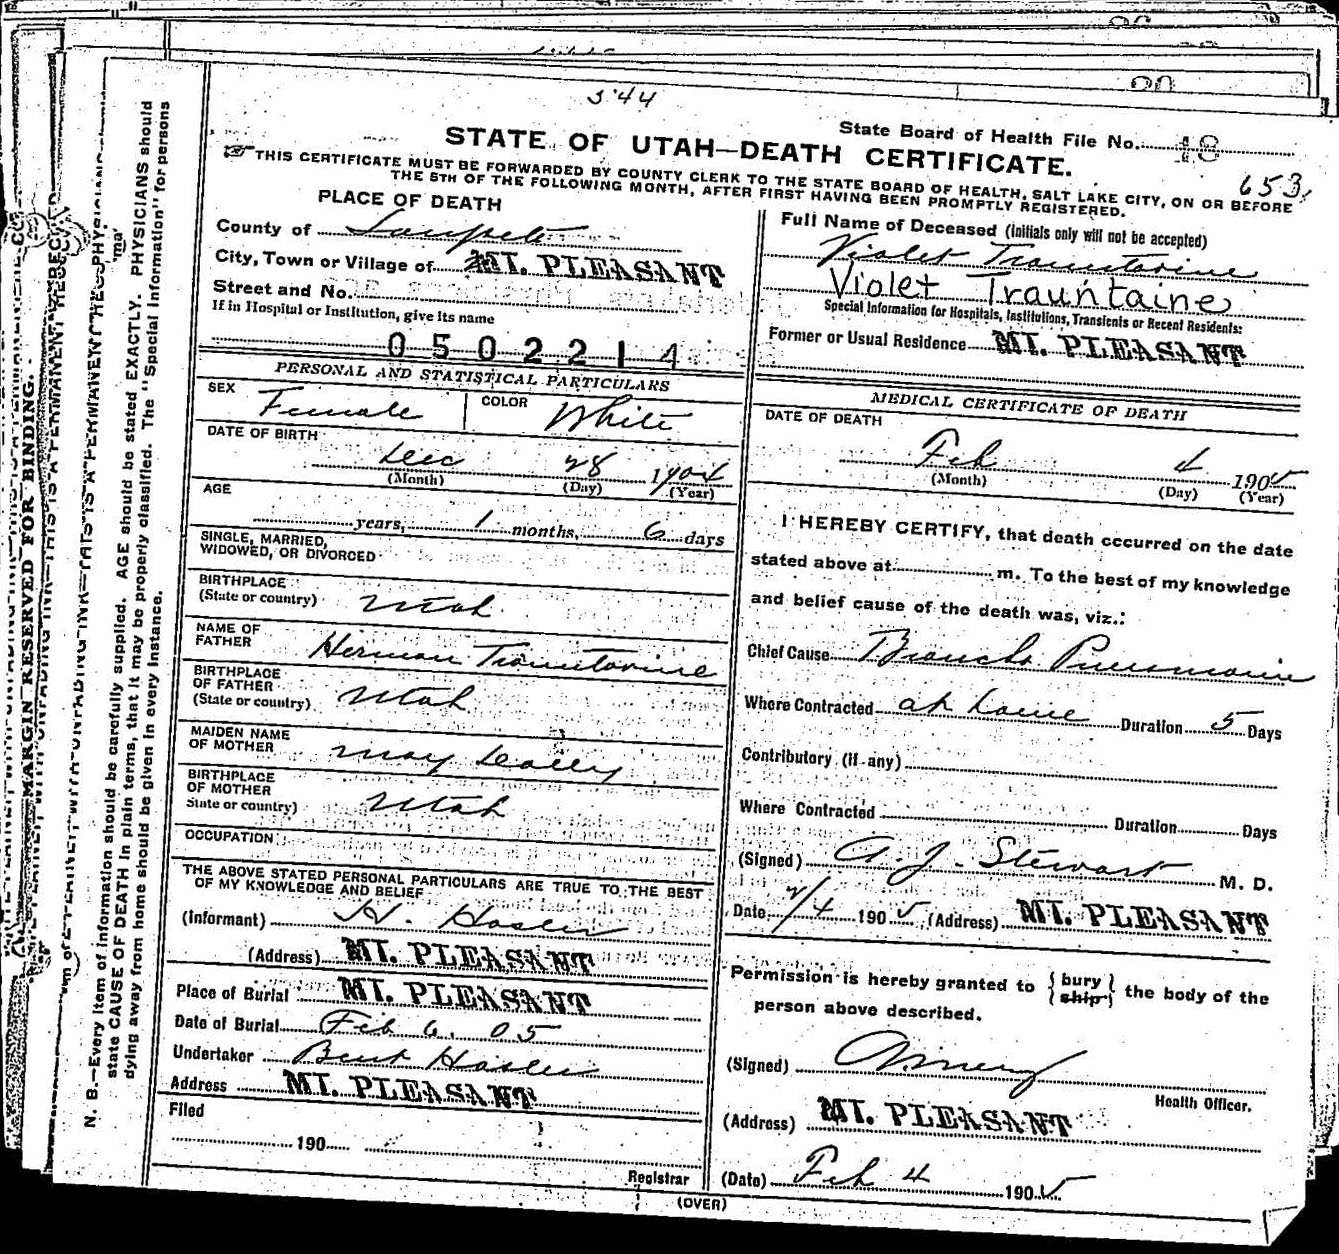 544
State Board of Health File No. 48
STATE OF UTAH—DEATH CERTIFICATE.
653
THIS CERTIFICATE MUST BE FORWARDED BY COUNTY CLERK TO THE STATE BOARD OF HEALTH, SALT LAKE CITY, ON OR BEFORE
THE 5TH OF THE FOLLOWING MONTH, AFTER FIRST HAVING BEEN PROMPTLY REGISTERED.
PLACE OF DEATH
County of Sanpete
City, Town or Village of MT. PLEASANT
Street and No.
If in Hospital or Institution, give its name
0502214
PERSONAL AND STATISTICAL PARTICULARS
SEX Female COLOR White
DATE OF BIRTH
Dec 28 1904
(Month) (Day) (Year)
AGE
years, 1 months, 6 days
SINGLE, MARRIED,
WIDOWED, OR DIVORCED
BIRTHPLACE
(State or country) Utah
NAME OF
FATHER Herman Trauntaine
BIRTHPLACE
OF FATHER
(State or country) Utah
MAIDEN NAME
OF MOTHER May
BIRTHPLACE
OF MOTHER
State or country) Utah
OCCUPATION
THE ABOVE STATED PERSONAL PARTICULARS ARE TRUE TO THE BEST
OF MY KNOWLEDGE AND BELIEF
(Informant) H. Hasler
(Address) MT. PLEASANT
Place of Burial MT. PLEASANT
Date of Burial Feb 6. 05
Undertaker Bent Hasler
Address MT. PLEASANT
Filed
190
Registrar
Full Name of Deceased (initials only will not be accepted)
Violet Trauntaine
Violet Trauntaine
Special Information for Hospitals, Institutions, Transients or Recent Residents:
Former or Usual Residence MT. PLEASANT
MEDICAL CERTIFICATE OF DEATH
DATE OF DEATH
Feb 4 1905
(Month) (Day) (Year)
I HEREBY CERTIFY, that death occurred on the date
stated above at m. To the best of my knowledge
and belief cause of the death was, viz.:
Chief Cause Broncho Pneumonia
Where Contracted at home Duration 5 Days
Contributory (if any)
Where Contracted Duration Days
(Signed) A. J. Stewart M. D.
Date 2/4 1905 (Address) MT. PLEASANT
Permission is hereby granted to {bury / ship} the body of the
person above described.
(Signed)
Health Officer.
(Address) MT. PLEASANT
(Date) Feb 4 1905
(OVER)
MARGIN RESERVED FOR BINDING.
N. B.—Every item of information should be carefully supplied. AGE should be stated EXACTLY. PHYSICIANS should
state CAUSE OF DEATH in plain terms, that it may be properly classified. The "Special Information" for persons
dying away from home should be given in every instance.